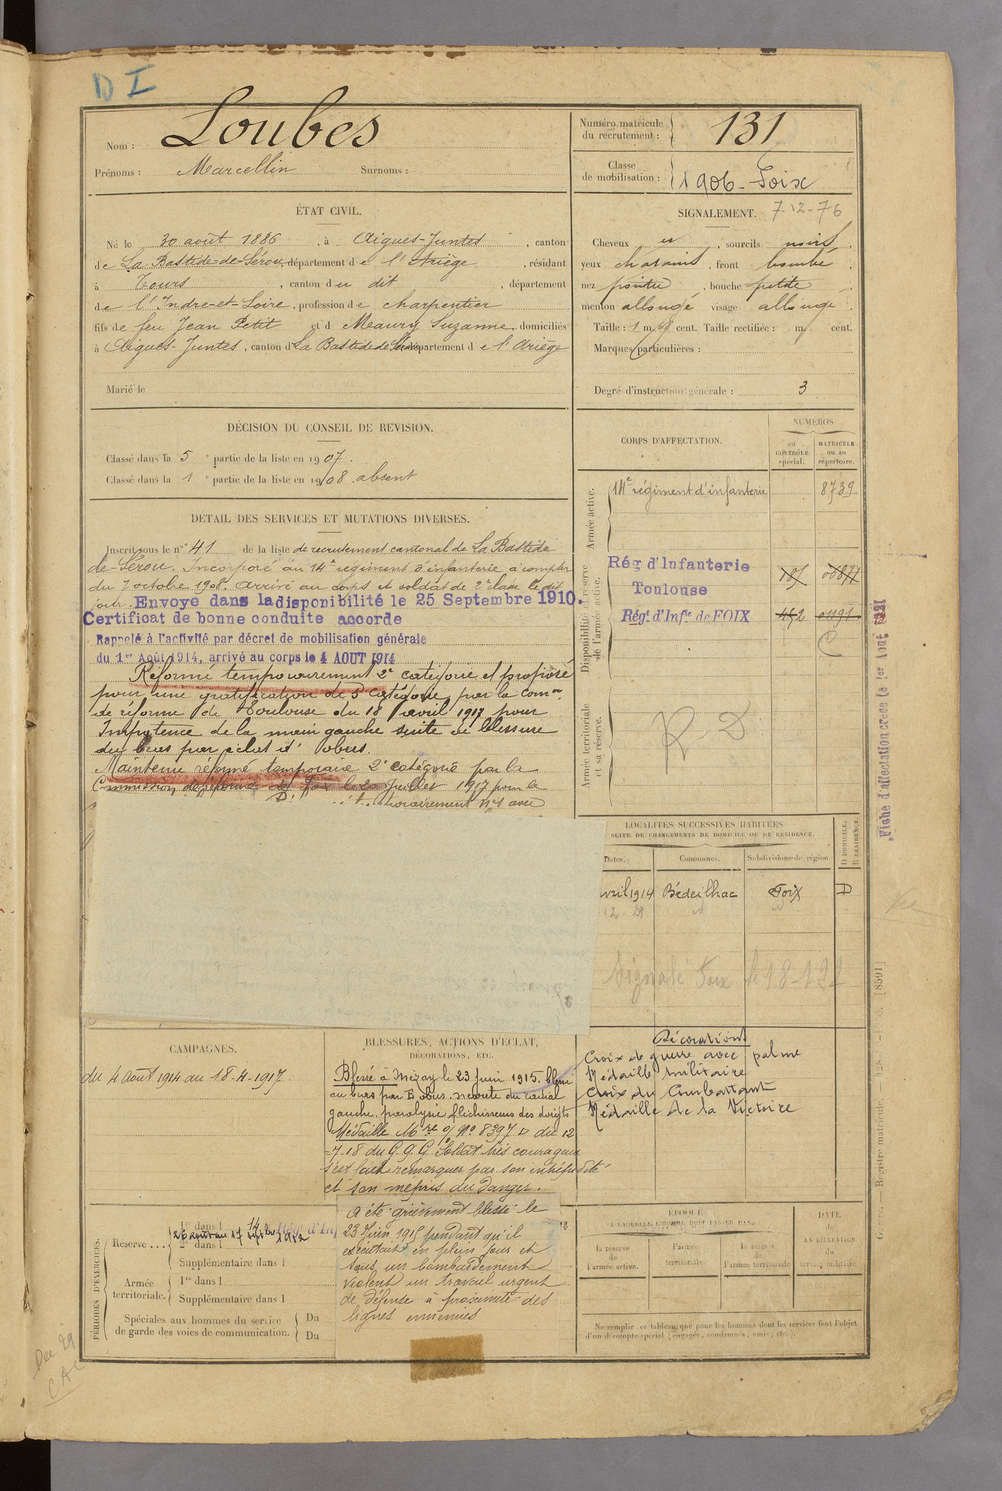 D I
Nom : Loubes
Prénoms : Marcellin Surnoms :
Numéro matricule
du recrutement : 131
Classe
de mobilisation : 1906 - Foix
ÉTAT CIVIL.
Né le 30 août 1886, à Aigues-Juntes, canton
de La Bastide-de-Sérou, département de l'Ariège, résidant
à Tours, canton du dit, département
de l'Indre-et-Loire, profession de charpentier
fils de feu Jean Petit et de Maury Suzanne, domiciliés
à Aigues-Juntes, canton de La Bastide de Sérou, département de l'Ariège
Marié le
SIGNALEMENT. 7-12-76
Cheveux et, sourcils noirs,
yeux chatains, front bombé,
nez pointu, bouche petite,
menton allongé visage allongé.
Taille : 1 m. 68 cent. Taille rectifiée : m. cent.
Marques particulières :
Degré d'instruction générale : 3
DÉCISION DU CONSEIL DE REVISION.
Classé dans la 5e partie de la liste en 1907.
Classé dans la 1e partie de la liste en 1908. absent
DÉTAIL DES SERVICES ET MUTATIONS DIVERSES.
Inscrit sous le n° 41 de la liste de recrutement cantonal de La Bastide
de-Sérou. Incorporé au 14e régiment d'infanterie à compter
du 7 octobre 1908. Arrivé au corps et soldat de 2e classe le dit
jour. Envoyé dans la disponibilité le 25 Septembre 1910.
Certificat de bonne conduite accordé
Rappelé à l'activité par décret de mobilisation générale
du 1er Août 1914, arrivé au corps le 4 AOUT 1914
Réformé temporairement 2e catégorie et proposé
pour une gratification de 5e catégorie, par la comon
de réforme de Toulouse du 18 avril 1917 pour
Impotence de la main gauche suite de blessure
du bras par éclat d'obus.
Maintenu réformé temporaire 2e catégorie par la
Commission de réforme de Foix le 20 Juillet 1917 pour la
CORPS D'AFFECTATION.
NUMÉROS
au
CONTRÔLE
spécial.
MATRICULE
ou au
répertoire.
Armée active.
14e régiment d'infanterie 8739
Disponibilité et réserve
de l'armée active.
Rég d'Infanterie
Toulouse
Régt d'Infie de FOIX
Armée territoriale
et sa réserve.
R D
Fiche d'affectation créée le 1er Août
LOCALITÉS SUCCESSIVES HABITÉES
SUITE DE CHANGEMENTS DE DOMICILE OU DE RÉSIDENCE.
Dates. Communes. Subdivisions de région. D DOMICILE. R RÉSIDENCE.
avril 1914 Bédeilhac Foix D
Signalé Foix
CAMPAGNES.
du 4 août 1914 au 18-4-1917
BLESSURES, ACTIONS D'ÉCLAT,
DÉCORATIONS, ETC.
Blessé à Mézay le 23 juin 1915.
au bras par E obus. du radial
gauche. paralysie fléchisseurs des doigts
Médaille Mre O/ No 8397 D du 12
-7.18 du G.Q.G. Soldat très courageux
s'est fait remarquer par son intrépidité
et son mépris du danger.
A été grièvement blessé le
23 Juin 1915 pendant qu'il
exécutait en plein jour et
sous un bombardement
violent un travail urgent
de défense à proximité des
lignes ennemies
Décorations
Croix de guerre avec palme
Médaille Militaire
Croix du Combattant
Médaille de la Victoire
PÉRIODES D'EXERCICES.
Réserve ...
1re dans l
2e dans l
Supplémentaire dans l
Armée
territoriale.
1re dans l
Supplémentaire dans l
Spéciales aux hommes du service
de garde des voies de communication.
Du
Du
ÉPOQUE
À LAQUELLE L'HOMME DOIT PASSER DANS
la réserve
de
l'armée active.
l'armée
territoriale.
la réserve
de
l'armée territoriale.
DATE
de
LA LIBÉRATION
du
service militaire.
Ne remplir ce tableau que pour les hommes dont les services font l'objet
d'un décompte spécial (engagés, condamnés, omis, etc.).
Registre matricule. [8591]